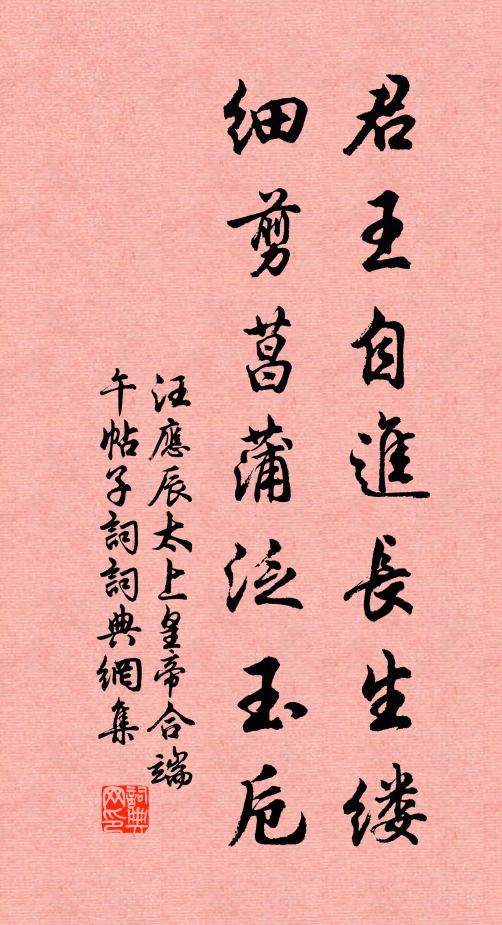 君王自進長生缕
细剪菖蒲泛玉卮
汪應辰太上皇帝合端
午帖子詞詞典網集
詞典网印